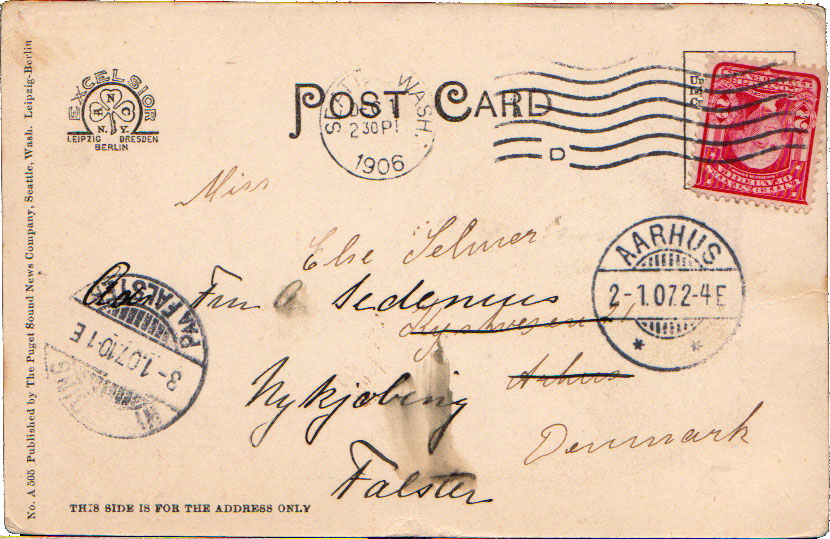 No. A 505 Published by The Puget Sound News Company, Seattle, Wash. Leipzig-Berlin
EXCELSIOR
N.Y.
LEIPZIG DRESDEN
BERLIN
POST CARD
WASH.
2 30 P
1906
D
Miss
Else Selmer
Adr Fru Sidenius
Kystvejen 21
Arhus
Nykjøbing
Denmark
Falster
AARHUS
2-1.07.2-4E
PAA FALST
3-1.07.10-1E
THIS SIDE IS FOR THE ADDRESS ONLY